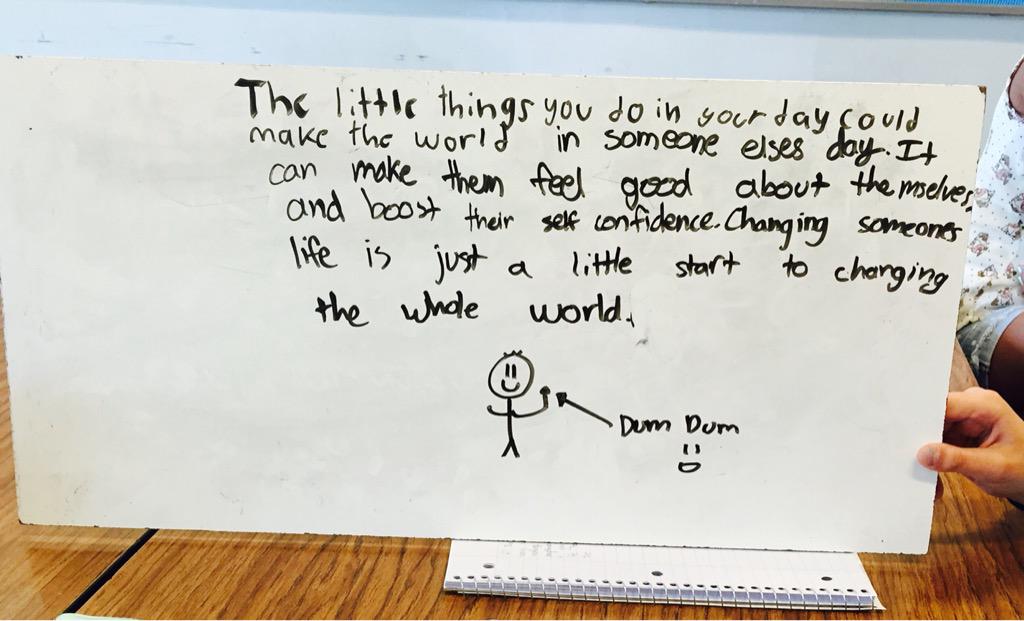 The little things you do in your day could
make the world in someone elses day. It
can make them feel good about themselves
and boost their self confidence. Changing someones
life is just a little start to changing
the whole world.
Dum Dum